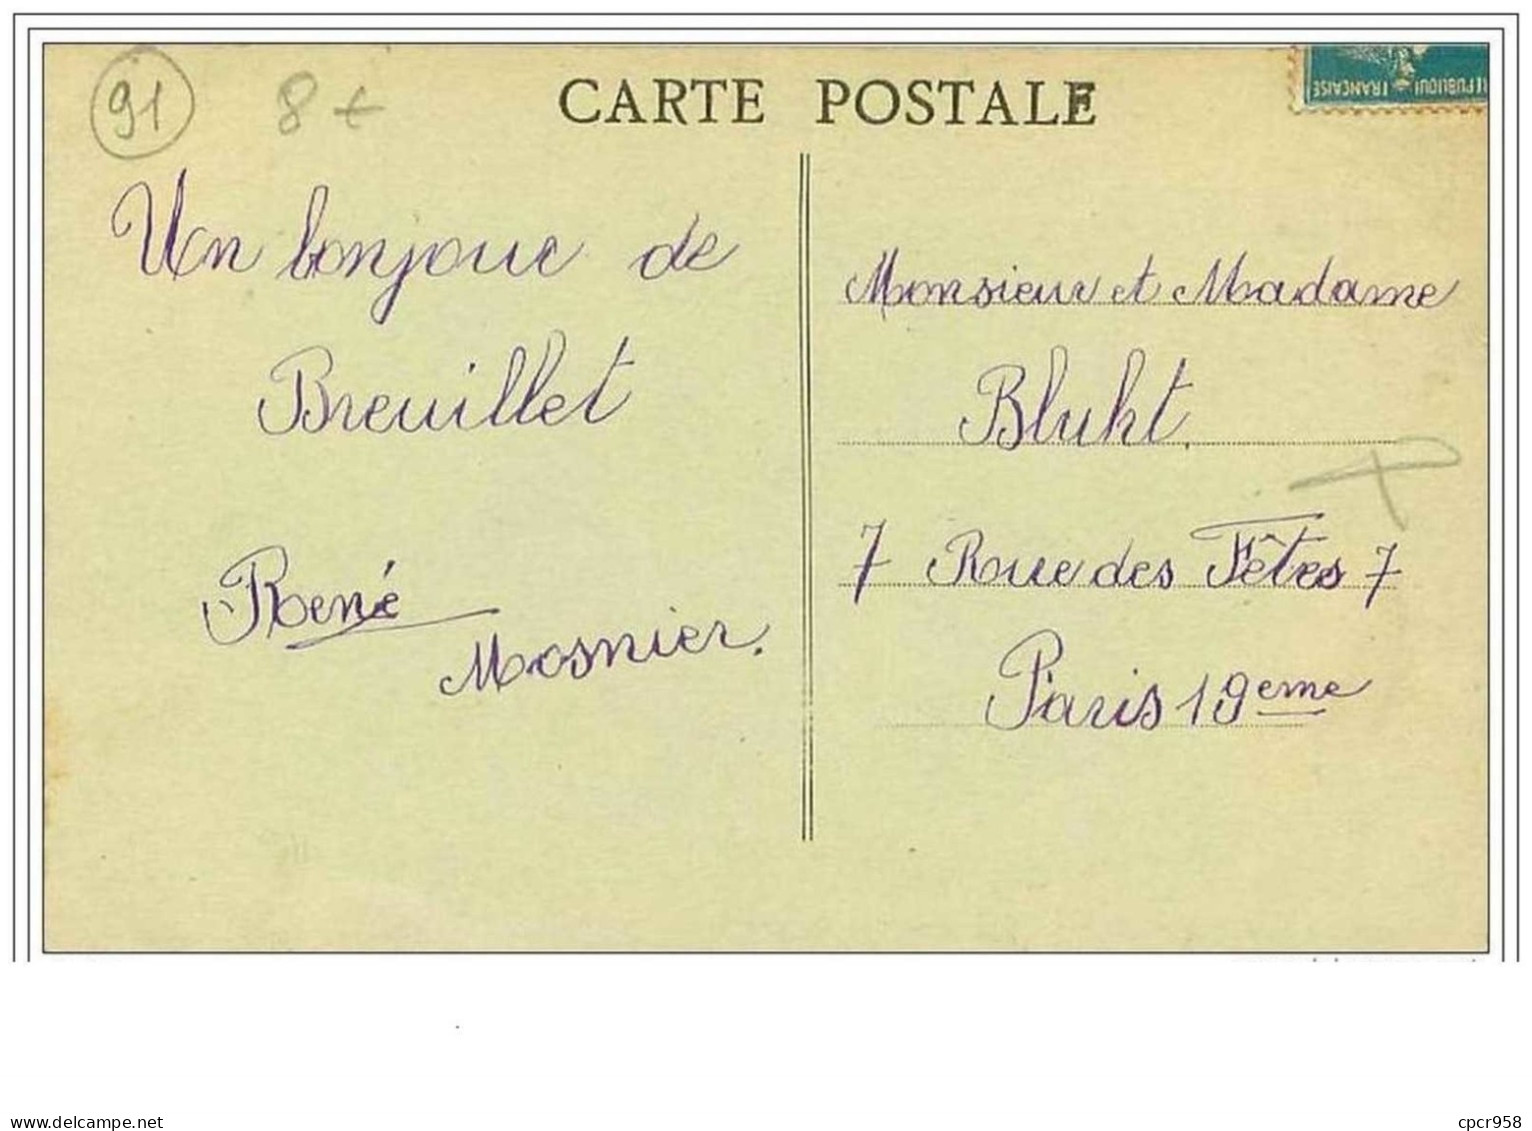 91
8+
CARTE POSTALE
RÉPUBLIQUE FRANÇAISE
Un bonjour de
Breuillet
René
Mosnier.
Monsieur et Madame
Bluht
7 Rue des Fêtes 7
Paris 19eme
cpcr958